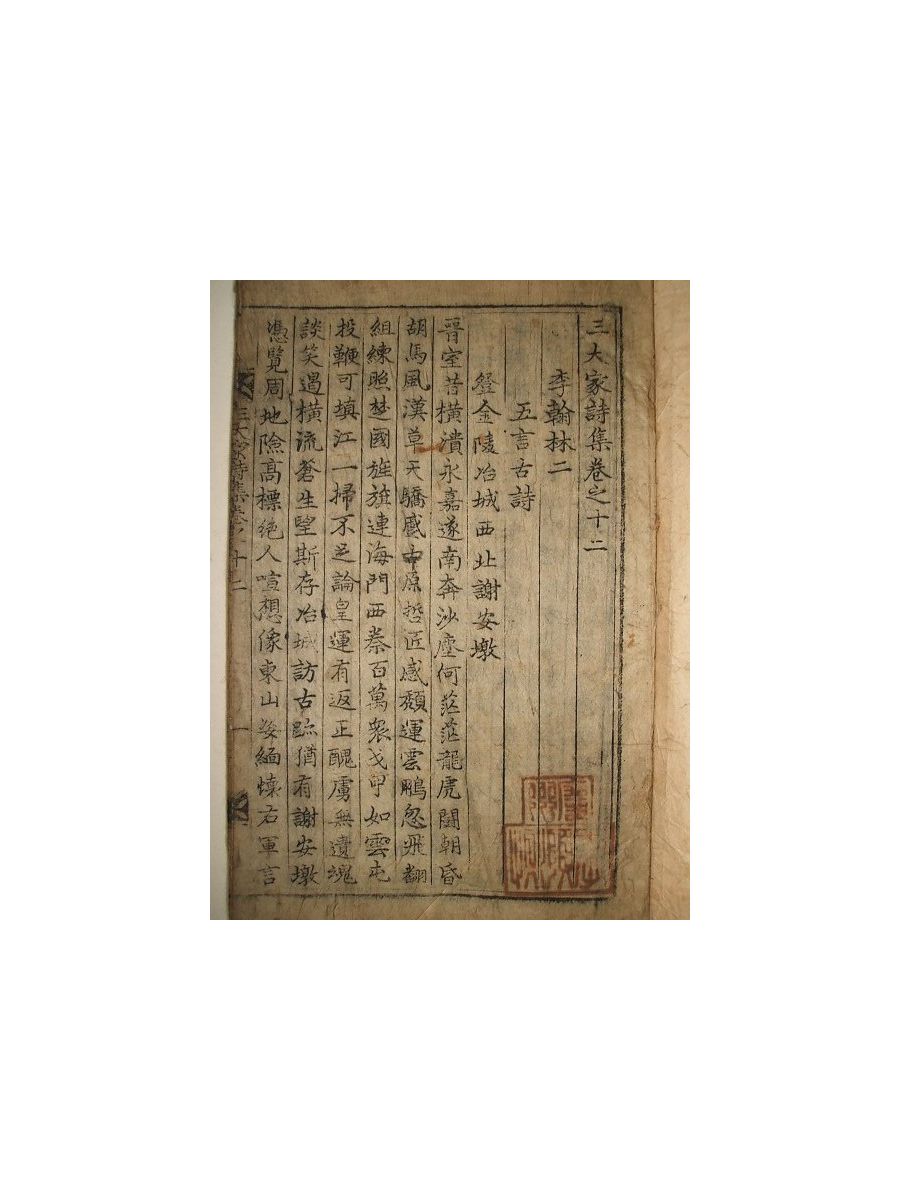 三大家詩集卷之十二
李翰林二
五言古詩
登金陵冶城西北謝安墩
晋室昔橫潰永嘉遂南奔沙塵何茫茫龍虎鬪朝昏
胡馬風漢草天驕蹙中原哲匠感頹運雲鵬忽飛翻
組練照楚國旌旗連海門西秦百萬衆戈甲如雲屯
投鞭可填江一掃不足論皇運有返正醜虜無遺魂
談笑遏橫流蒼生望斯存冶城訪古跡猶有謝安墩
憑覽周地險高標絶人喧想像東山姿緬懷右軍言
三大家詩集卷之十二 一